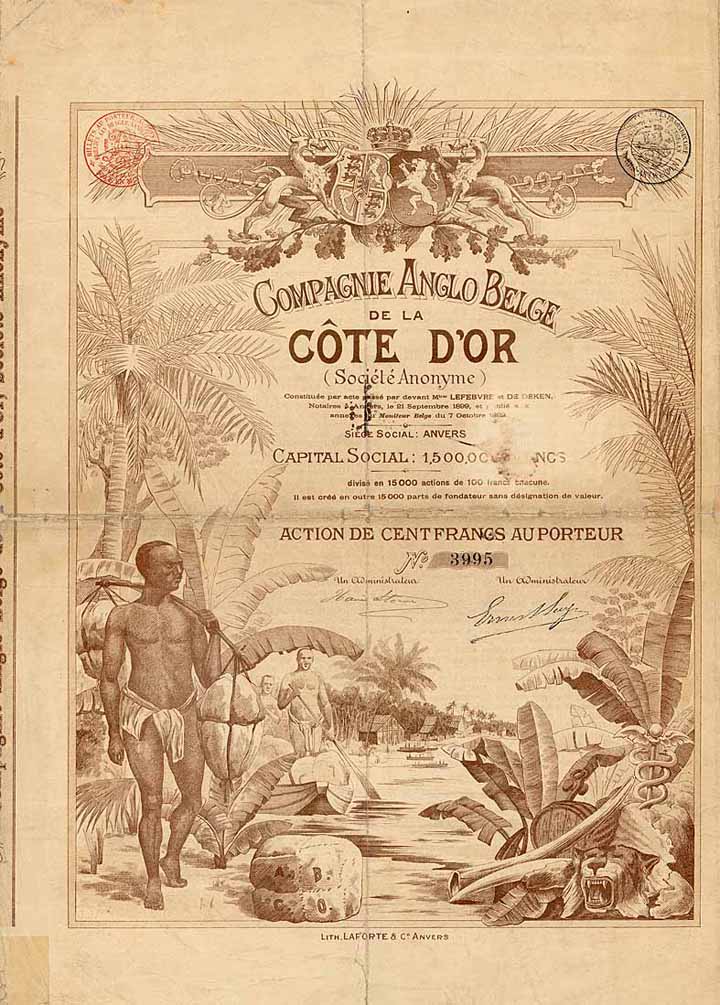 COMPAGNIE ANGLO BELGE
DE LA
CÔTE D'OR
(Société Anonyme)
Constituée par acte passé par devant Mtres LEFEBVRE et DE DEKEN,
Notaires à Anvers, le 21 Septembre 1899, et publié aux
annexes du Moniteur Belge du 7 Octobre
SIÈGE SOCIAL: ANVERS
CAPITAL SOCIAL: 1,500,000 FRANCS
divisé en 15000 actions de 100 francs chacune.
Il est créé en outre 15000 parts de fondateur sans désignation de valeur.
ACTION DE CENT FRANCS AU PORTEUR
No 3995
Un Administrateur
Un Administrateur
A.B.
C.O.
LITH. LAPORTE & Co ANVERS